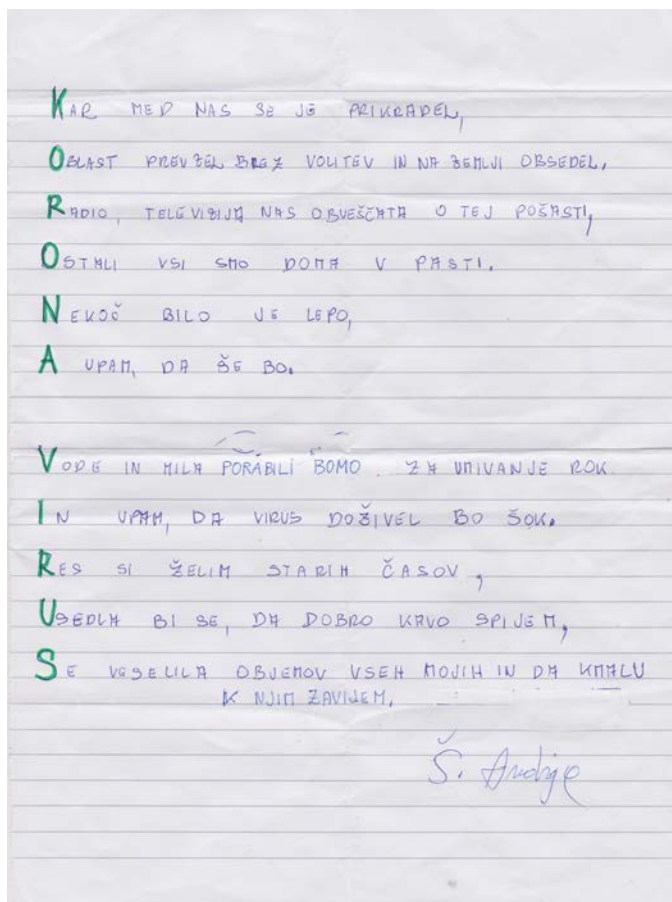 KAR MED NAS SE JE PRIKRADEL,
OBLAST PREVZEL BREZ VOLITEV IN NA ZEMLJI OBSEDEL.
RADIO, TELEVIZIJA NAS OBVEŠČATA O TEJ POŠASTI,
OSTALI VSI SMO DOMA V PASTI.
NEKOČ BILO JE LEPO,
A UPAM, DA ŠE BO.
VODE IN MILA PORABILI BOMO ZA UMIVANJE ROK
IN UPAM, DA VIRUS DOŽIVEL BO ŠOK.
RES SI ŽELIM STARIH ČASOV,
USEDLA BI SE, DA DOBRO KAVO SPIJEM,
SE VESELILA OBJEMOV VSEH MOJIH IN DA KMALU
K NJIM ZAVIJEM.
Š.